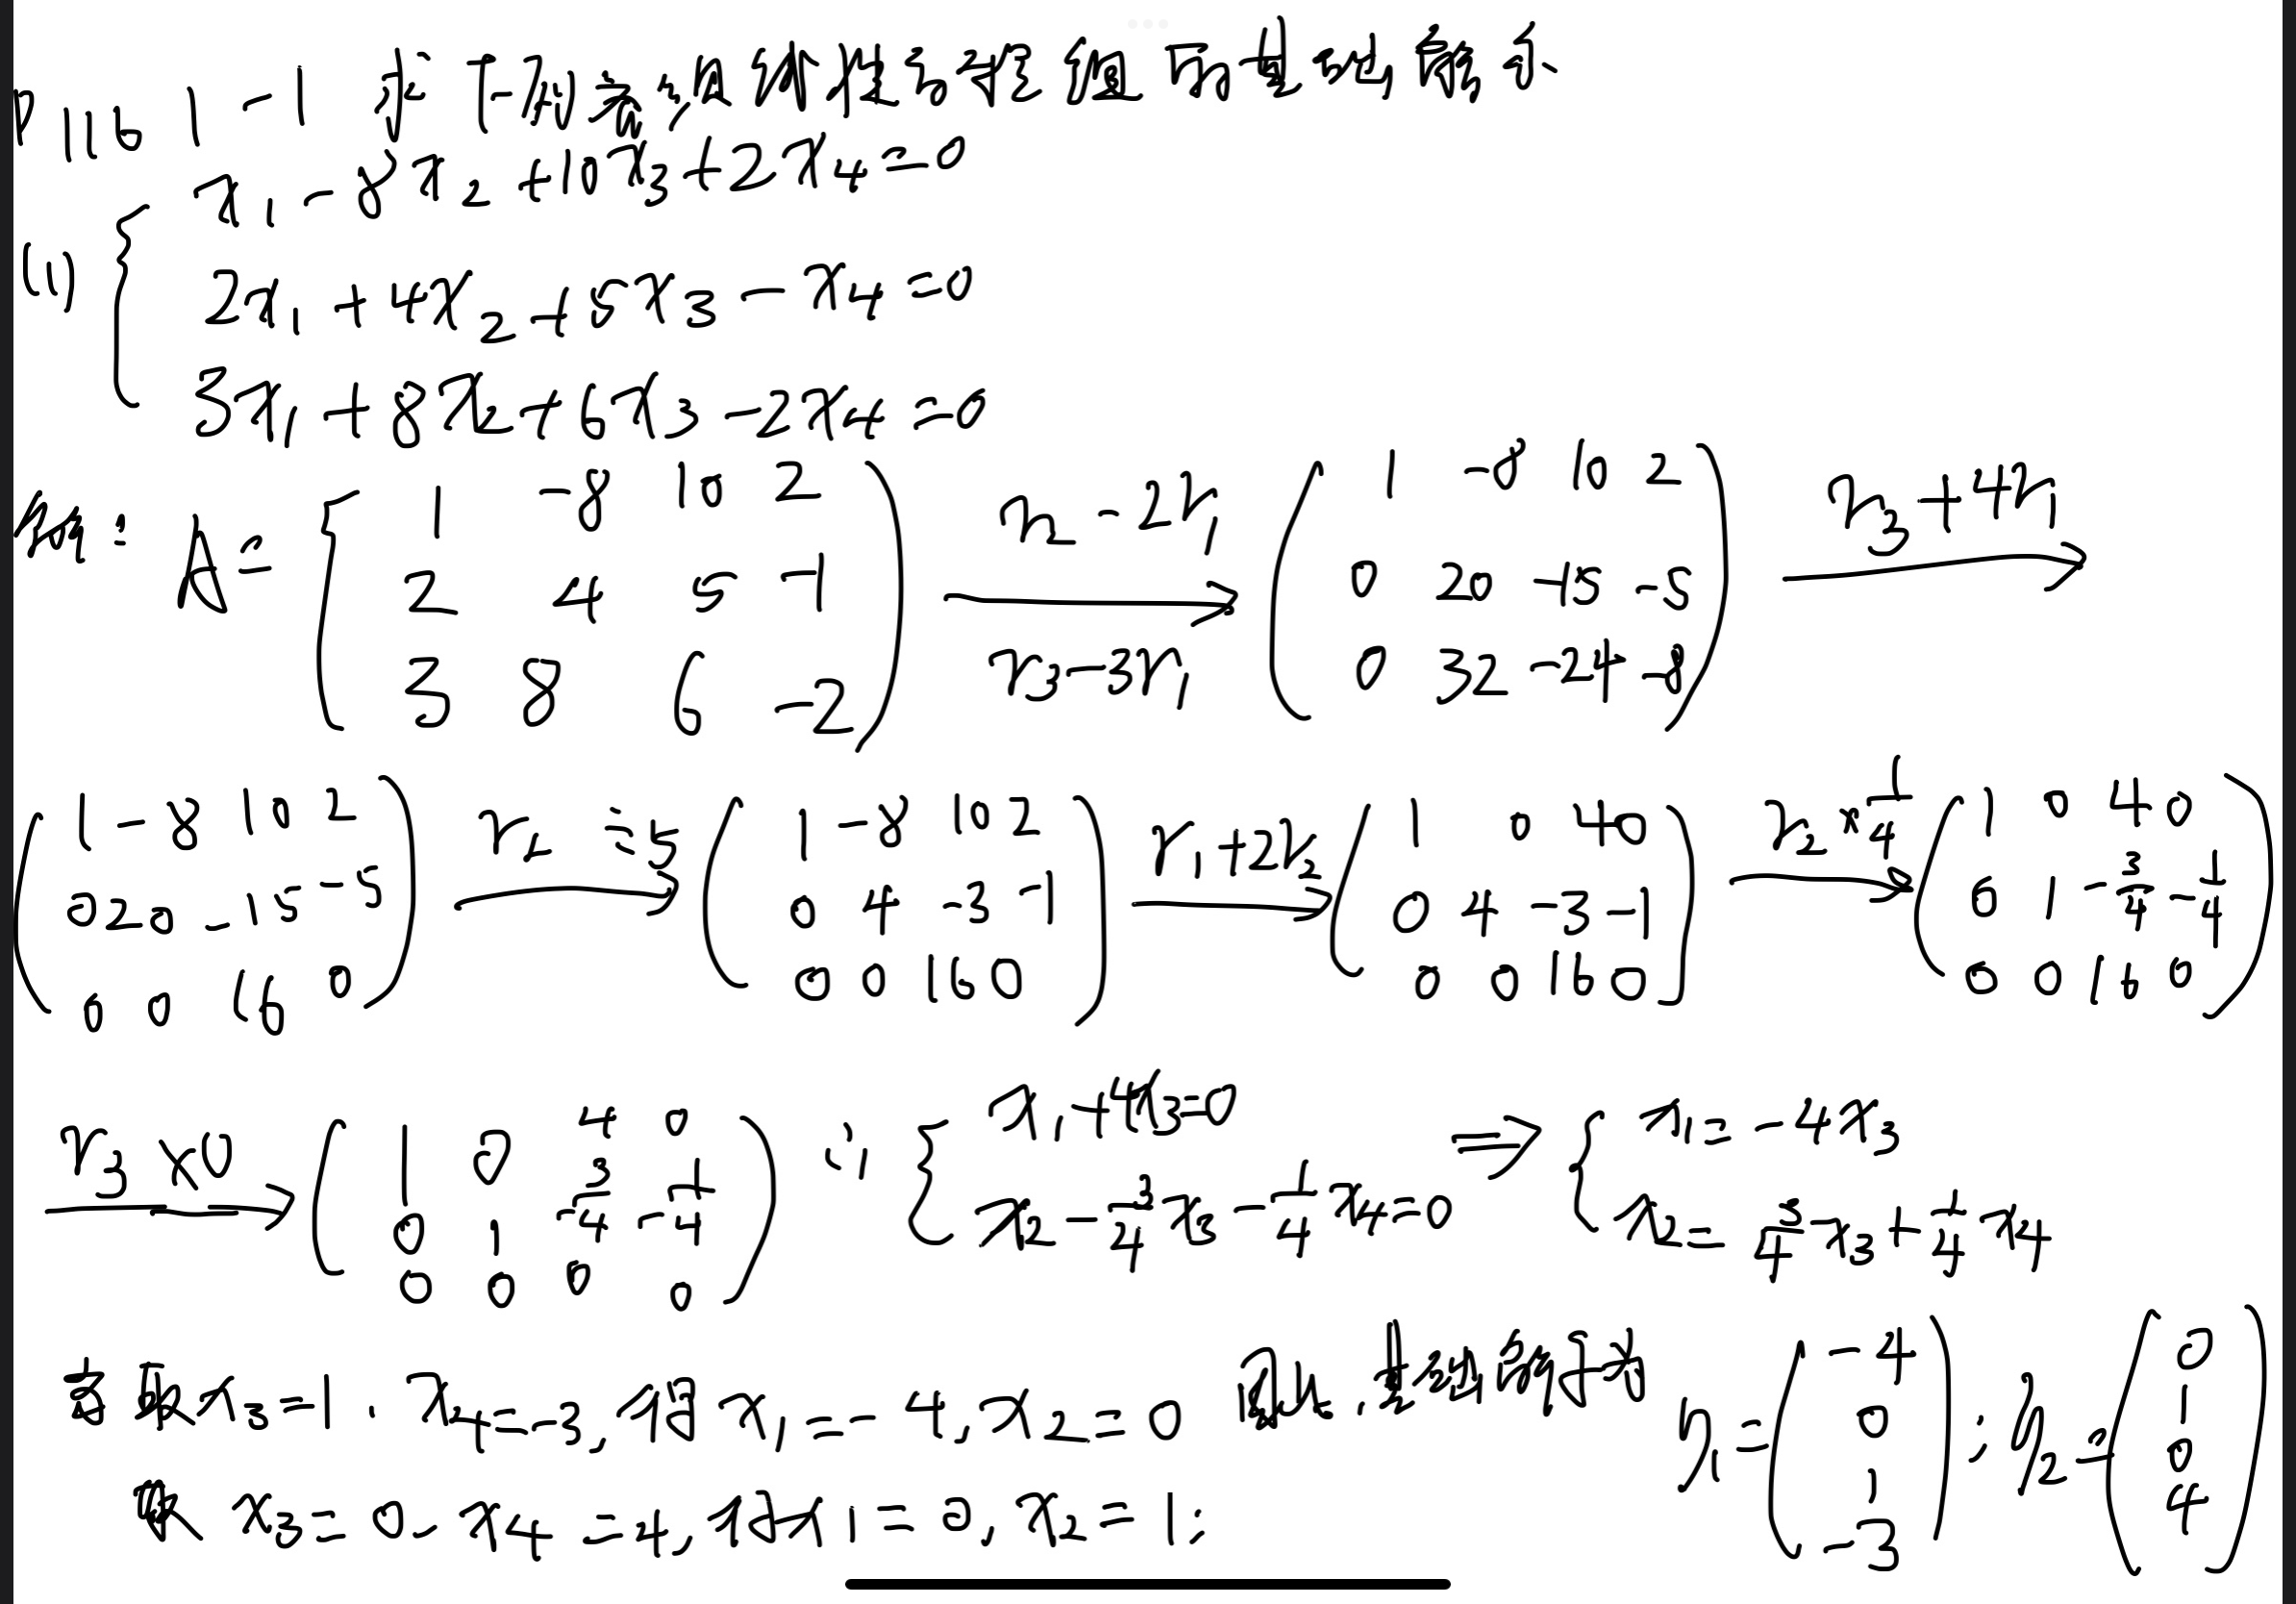 P116 1-1 求下列齐次线性方程组的基础解系
(1) { x₁-8x₂+10x₃+2x₄=0
2x₁+4x₂+5x₃-x₄=0
3x₁+8x₂+6x₃-2x₄=0
解: A= [1 -8 10 2; 2 4 5 -1; 3 8 6 -2) r₂-2r₁ r₃-3r₁ → (1 -8 10 2; 0 20 -15 -5; 0 32 -24 -8) r₃+4r₁ →
(1 -8 10 2; 0 20 -15 -5; 0 0 16 0) r₂÷5 → (1 -8 10 2; 0 4 -3 -1; 0 0 16 0) r₁+2r₂ → (1 0 4 0; 0 4 -3 -1; 0 0 16 0) r₂×1/4 → (1 0 4 0; 0 1 -3/4 -1/4; 0 0 16 0)
r₃×0 → (1 0 4 0; 0 1 -3/4 -1/4; 0 0 0 0) ∴ { x₁+4x₃=0; x₂-3/4x₃-1/4x₄=0 ⇒ { x₁=-4x₃; x₂=3/4x₃+1/4x₄
取x₃=1, x₄=-3, 得x₁=-4, x₂=0 因此,基础解系为 η₁=(-4; 0; 1; -3); η₂=(0; 1; 0; 4)
取x₃=0, x₄=4, 得x₁=0, x₂=1;